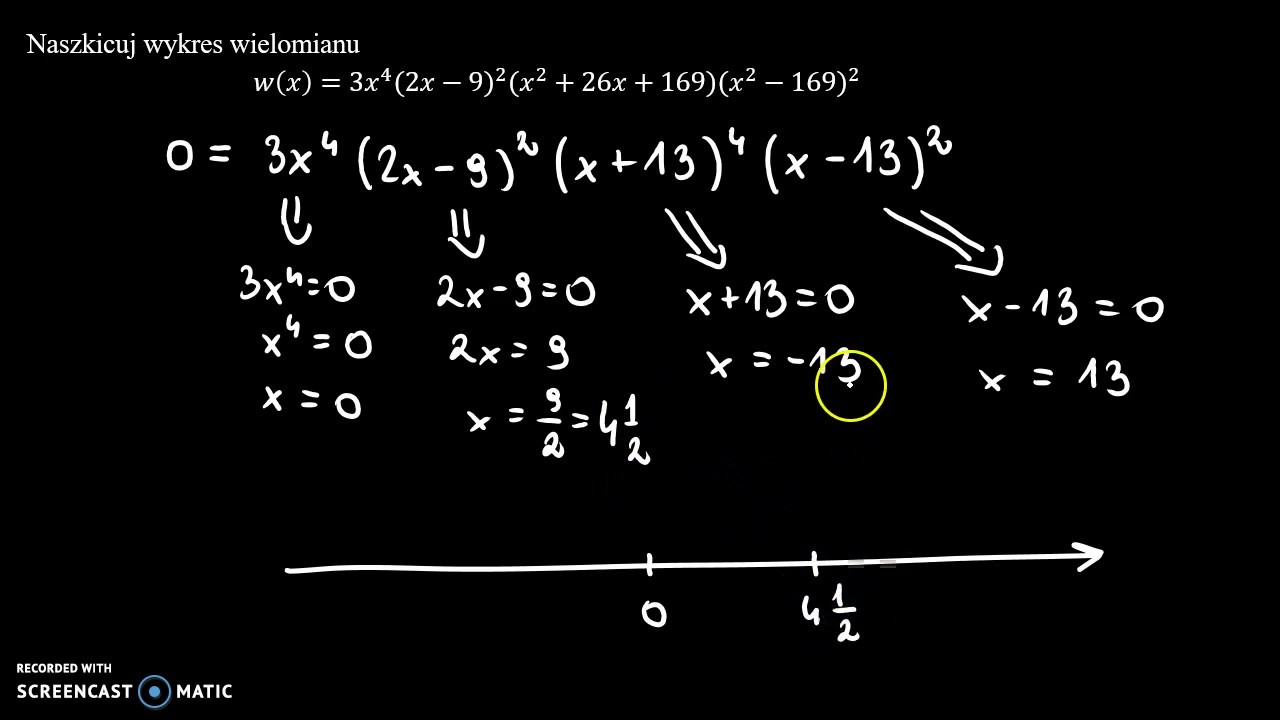 Naszkicuj wykres wielomianu
w(x) = 3x⁴(2x − 9)²(x² + 26x + 169)(x² − 169)²
0 = 3x⁴ (2x − 9)² (x + 13)⁴ (x − 13)²
3x⁴ = 0 2x − 9 = 0 x + 13 = 0 x − 13 = 0
x⁴ = 0 2x = 9 x = −13 x = 13
x = 0 x = 9/2 = 4 1/2
0 4 1/2
RECORDED WITH
SCREENCAST MATIC